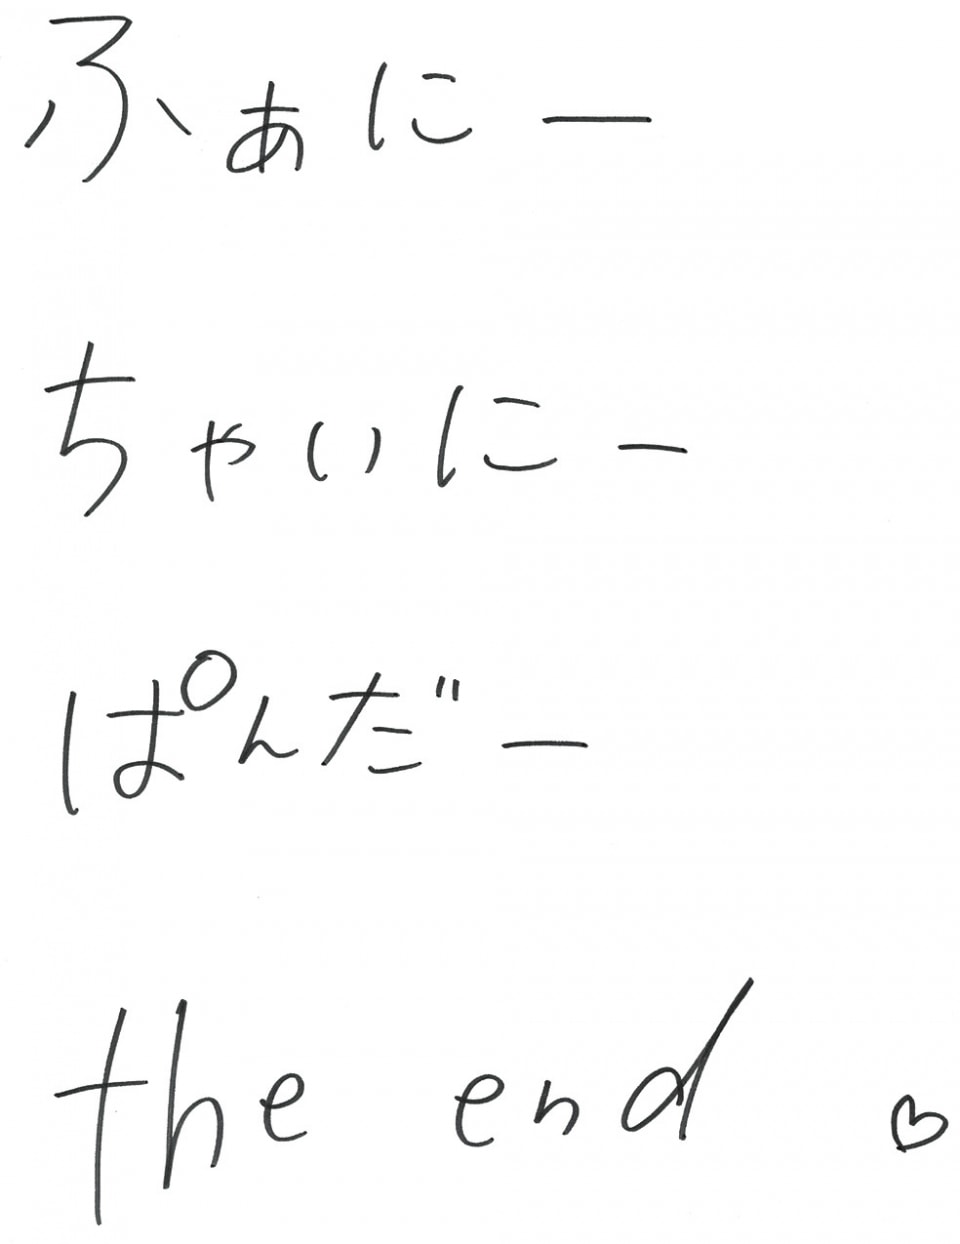 ふぁにー
ちゃいにー
ぱんだー
the end ♡